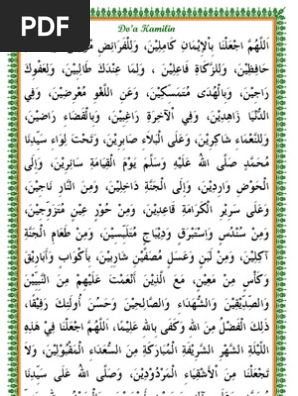 PDF
Do'a Kamilin
اَللّٰهُمَّ اجْعَلْنَا بِاْلإِيْمَانِ كَامِلِيْنَ، وَلِلْفَرَائِضِ
حَافِظِيْنَ، وَلِلزَّكَاةِ فَاعِلِيْنَ ، وَلِمَا عِنْدَكَ طَالِبِيْنَ، وَلِعَفْوِكَ
رَاجِيْنَ، وَبِالْهُدَى مُتَمَسِّكِيْنَ، وَعَنِ اللَّغْوِ مُعْرِضِيْنَ، وَفِي
الدُّنْيَا زَاهِدِيْنَ، وَفِي اْلآخِرَةِ رَاغِبِيْنَ، وَبِالْقَضَاءِ رَاضِيْنَ،
وَلِلنَّعْمَاءِ شَاكِرِيْنَ، وَعَلَى الْبَلَاءِ صَابِرِيْنَ، وَتَحْتَ لِوَاءِ سَيِّدِنَا
مُحَمَّدٍ صَلَّى اللهُ عَلَيْهِ وَسَلَّمَ يَوْمَ الْقِيَامَةِ سَائِرِيْنَ، وَإِلَى
الْحَوْضِ وَارِدِيْنَ، وَإِلَى الْجَنَّةِ دَاخِلِيْنَ، وَمِنَ النَّارِ نَاجِيْنَ،
وَعَلَى سَرِيْرِ الْكَرَامَةِ قَاعِدِيْنَ، وَمِنْ حُوْرٍ عِيْنٍ مُتَزَوِّجِيْنَ،
وَمِنْ سُنْدُسٍ وَاِسْتَبْرَقٍ وَدِيْبَاجٍ مُتَلَبِّسِيْنَ، وَمِنْ طَعَامِ الْجَنَّةِ
آكِلِيْنَ، وَمِنْ لَبَنٍ وَعَسَلٍ مُصَفَّيْنِ شَارِبِيْنَ، بِأَكْوَابٍ وَأَبَارِيْقَ
وَكَأْسٍ مِنْ مَعِيْنٍ، مَعَ الَّذِيْنَ أَنْعَمْتَ عَلَيْهِمْ مِنَ النَّبِيِّيْنَ
وَالصِّدِّيْقِيْنَ وَالشُّهَدَاءِ وَالصَّالِحِيْنَ وَحَسُنَ أُولَئِكَ رَفِيْقًا،
ذٰلِكَ الْفَضْلُ مِنَ اللهِ وَكَفَى بِاللهِ عَلِيْمًا، اَللّٰهُمَّ اجْعَلْنَا فِيْ هٰذِهِ
اللَّيْلَةِ الشَّهْرِ الشَّرِيْفَةِ الْمُبَارَكَةِ مِنَ السُّعَدَاءِ الْمَقْبُوْلِيْنَ، وَلَا
تَجْعَلْنَا مِنَ اْلأَشْقِيَاءِ الْمَرْدُوْدِيْنَ، وَصَلَّى اللهُ عَلَى سَيِّدِنَا